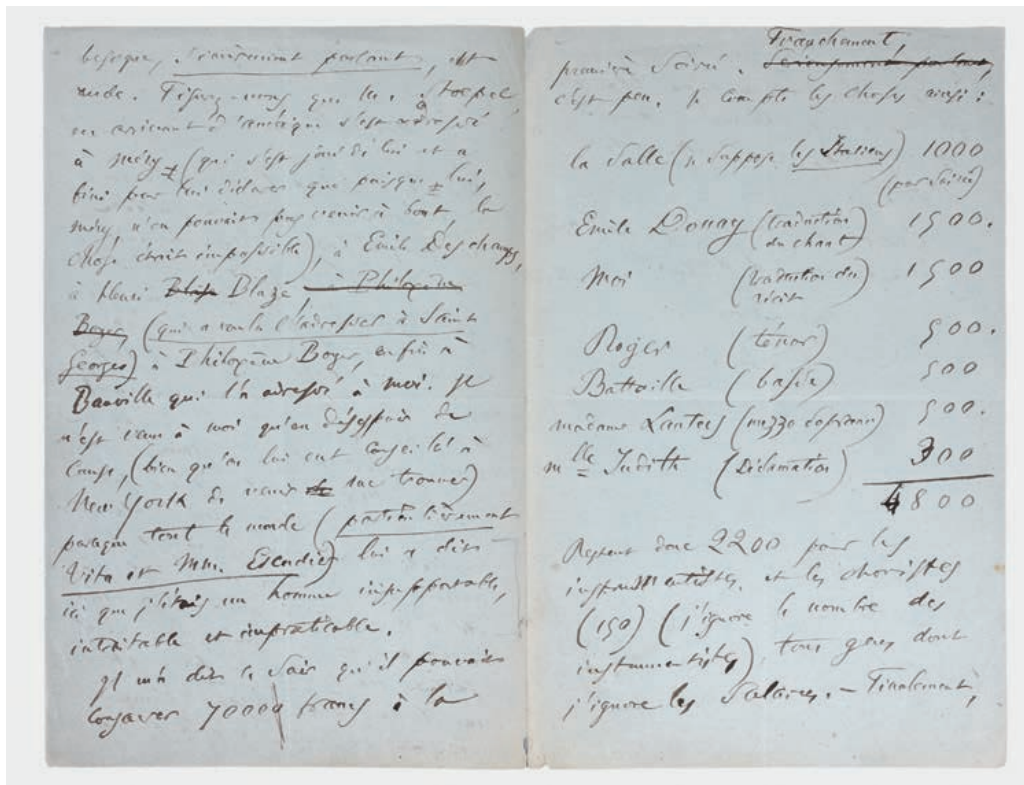 besogne, sérieusement parlant, est
rude. Figurez-vous que M. Stoepel,
en arrivant d'Amérique s'est adressé
à Méry (qui s'est joué de lui et a
fini par lui déclarer que puisque lui,
Méry n'en pouvait pas venir à bout, la
chose était impossible), à Emile Deschamps,
à Henri Blaze Blaze à Philoxène
Boyer (qui a voulu l'adresser à Saint
Georges) à Philoxène Boyer, enfin à
Banville qui l'a adressé à moi. Il
n'est venu à moi qu'en désespoir de
cause, (bien qu'on lui eut conseillé à
New York de venir me trouver)
parceque tout le monde (particulièrement
Vitu et MM. Escudier) lui a dit
ici que j'étais un homme insupportable,
intraitable et impraticable.
Il m'a dit le soir qu'il pouvait
consacrer 7000 francs à la
Franchement,
première Soirée. Sérieusement parlant,
c'est peu. Je compte les choses ainsi :
la Salle (je suppose les Italiens) 1000
(par Soirée)
Emile Douay (traduction 1500.
du chant)
Moi (traduction du 1500
récit
Roger (ténor) 500.
Battaille (basse) 500
madame Lauters (mezzo soprano) 500.
Mlle Judith (Déclamation) 300
4800
Restent donc 2200 pour les
instrumentistes, et les choristes
(150) (j'ignore le nombre des
instrumentistes), tous gens dont
j'ignore les Salaires. – Finalement,